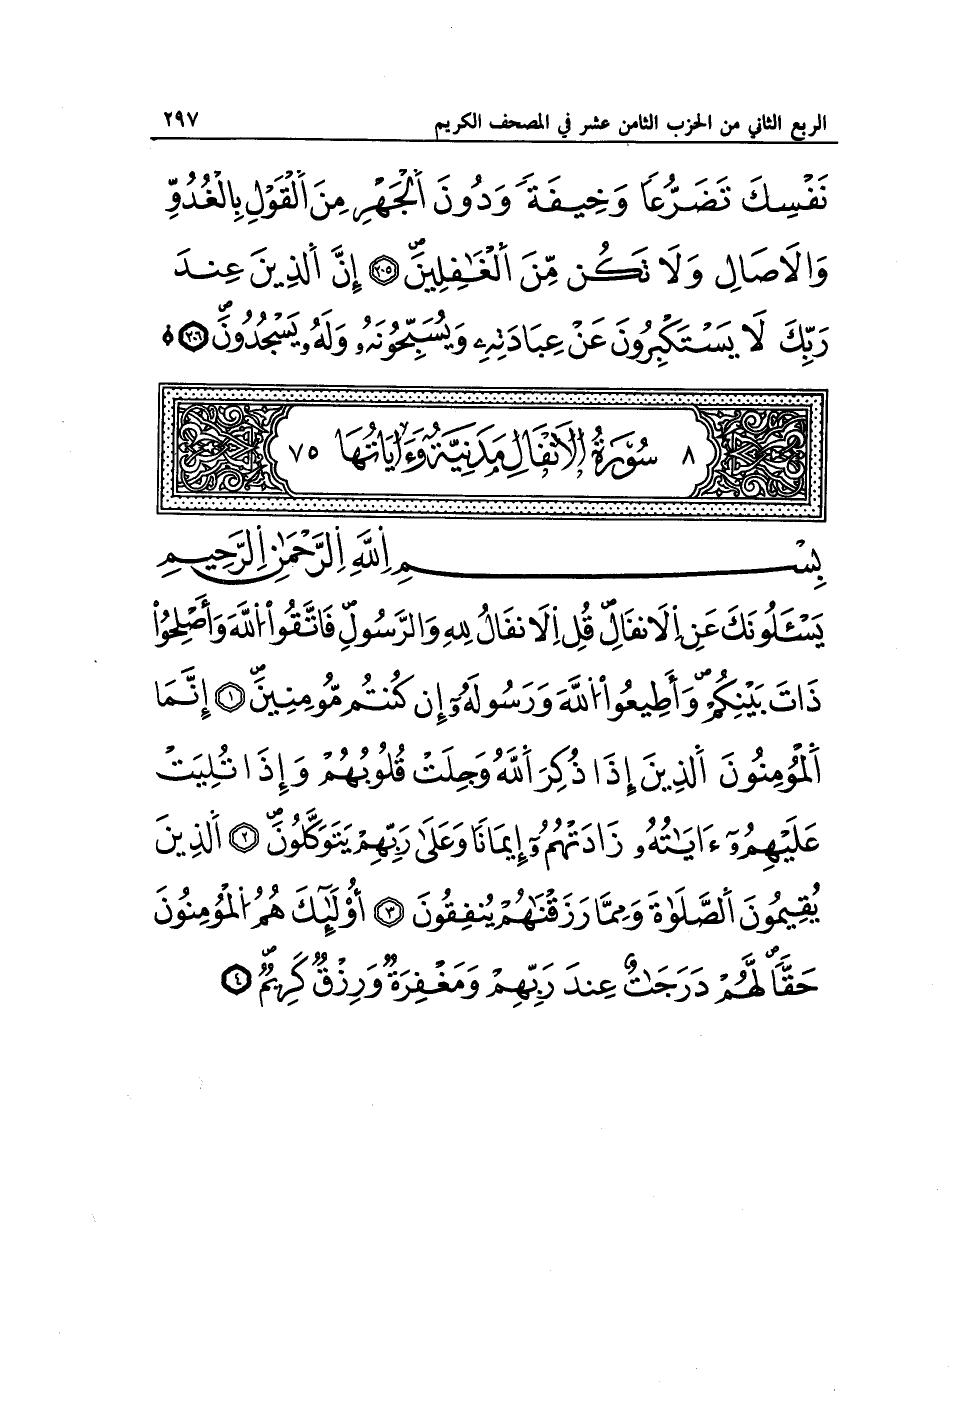 الربع الثاني من الحزب الثامن عشر في المصحف الكريم ٢٩٧
نَفْسِكَ تَضَرُّعاً وَخِيفَةً وَدُونَ اَلْجَهْرِ مِنَ اَلْقَوْلِ بِالْغُدُوِّ
وَالَاصَالِ وَلَا تَكُن مِّنَ اَلْغَٰفِلِينَۖ ٢٠٥ إِنَّ اَلذِينَ عِندَ
رَبِّكَ لَا يَسْتَكْبِرُونَ عَنْ عِبَادَتِهِۦ وَيُسَبِّحُونَهُۥ وَلَهُۥ يَسْجُدُونَۖ ٢٠٦ ۩
٨ سُورَةُ اُلَانفَالِ مَدَنِيَّةٌ وَءَايَاتُهَا ٧٥
بِسْمِ اِللَّهِ اِلرَّحْمَٰنِ اِلرَّحِيمِ
يَسْـَٔلُونَكَ عَنِ اِلَانفَالِۖ قُلِ اِلَانفَالُ لِلهِ وَالرَّسُولِۖ فَاتَّقُواْ اُللَّهَ وَأَصْلِحُواْ
ذَاتَ بَيْنِكُمْۖ وَأَطِيعُواْ اُللَّهَ وَرَسُولَهُۥٓ إِن كُنتُم مُّومِنِينَۖ ١ إِنَّمَا
اَلْمُؤْمِنُونَ اَلذِينَ إِذَا ذُكِرَ اَللَّهُ وَجِلَتْ قُلُوبُهُمْ وَإِذَا تُلِيَتْ
عَلَيْهِمُۥٓ ءَايَٰتُهُۥ زَادَتْهُمُۥٓ إِيمَانًا وَعَلَىٰ رَبِّهِمْ يَتَوَكَّلُونَۖ ٢ اَلذِينَ
يُقِيمُونَ اَلصَّلَوٰةَ وَمِمَّا رَزَقْنَٰهُمْ يُنفِقُونَ ٣ أُوْلَٰٓئِكَ هُمُ اُلْمُؤْمِنُونَ
حَقّاًۖ لَّهُمْ دَرَجَٰتٌ عِندَ رَبِّهِمْ وَمَغْفِرَةٌ وَرِزْقٌ كَرِيمٌۖ ٤